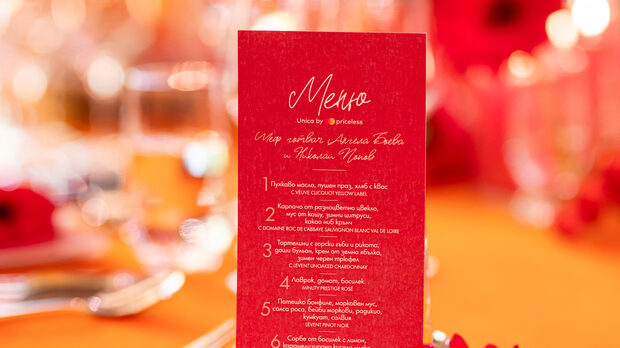 Меню
Unica by priceless
Шеф готвач Ангела Боева
и Николай Попов
1 Пухкаво масло, пушен праз, хляб с квас
С VEUVE CLICQUOT YELLOW LABEL
2 Карпачо от разноцветно цвекло,
мус от кашу, зимни цитруси,
какао ниб крънч
С DOMAINE ROC DE L'ABBAYE SAUVIGNON BLANC VAL DE LOIRE
3 Тортелини с горски гъби и рикота,
даши бульон, крем от земна ябълка,
зимен черен трюфел
С LEVENT UNOAKED CHARDONNAY
4 Лаврак, домат, босилек
MINUTY PRESTIGE ROSÉ
5 Патешко бонфиле, морковен мус,
салса роса, бейби моркови, радикио,
кумкуат, салвия
LEVENT PINOT NOIR
6 Сорбе от босилек с лимон,